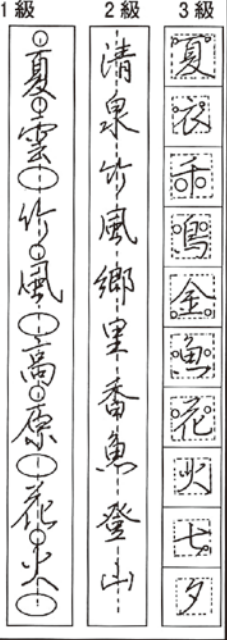 1級
夏雲竹風高原花火
2級
清泉竹風郷里香魚登山
3級
夏衣千鳥金魚花火七夕